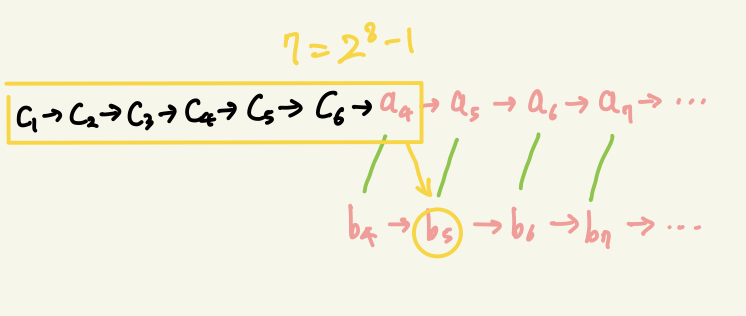 7 = 2⁸ - 1
C₁ → C₂ → C₃ → C₄ → C₅ → C₆ → a₄ → a₅ → a₆ → a₇ → ...
b₄ → b₅ → b₆ → b₇ → ...